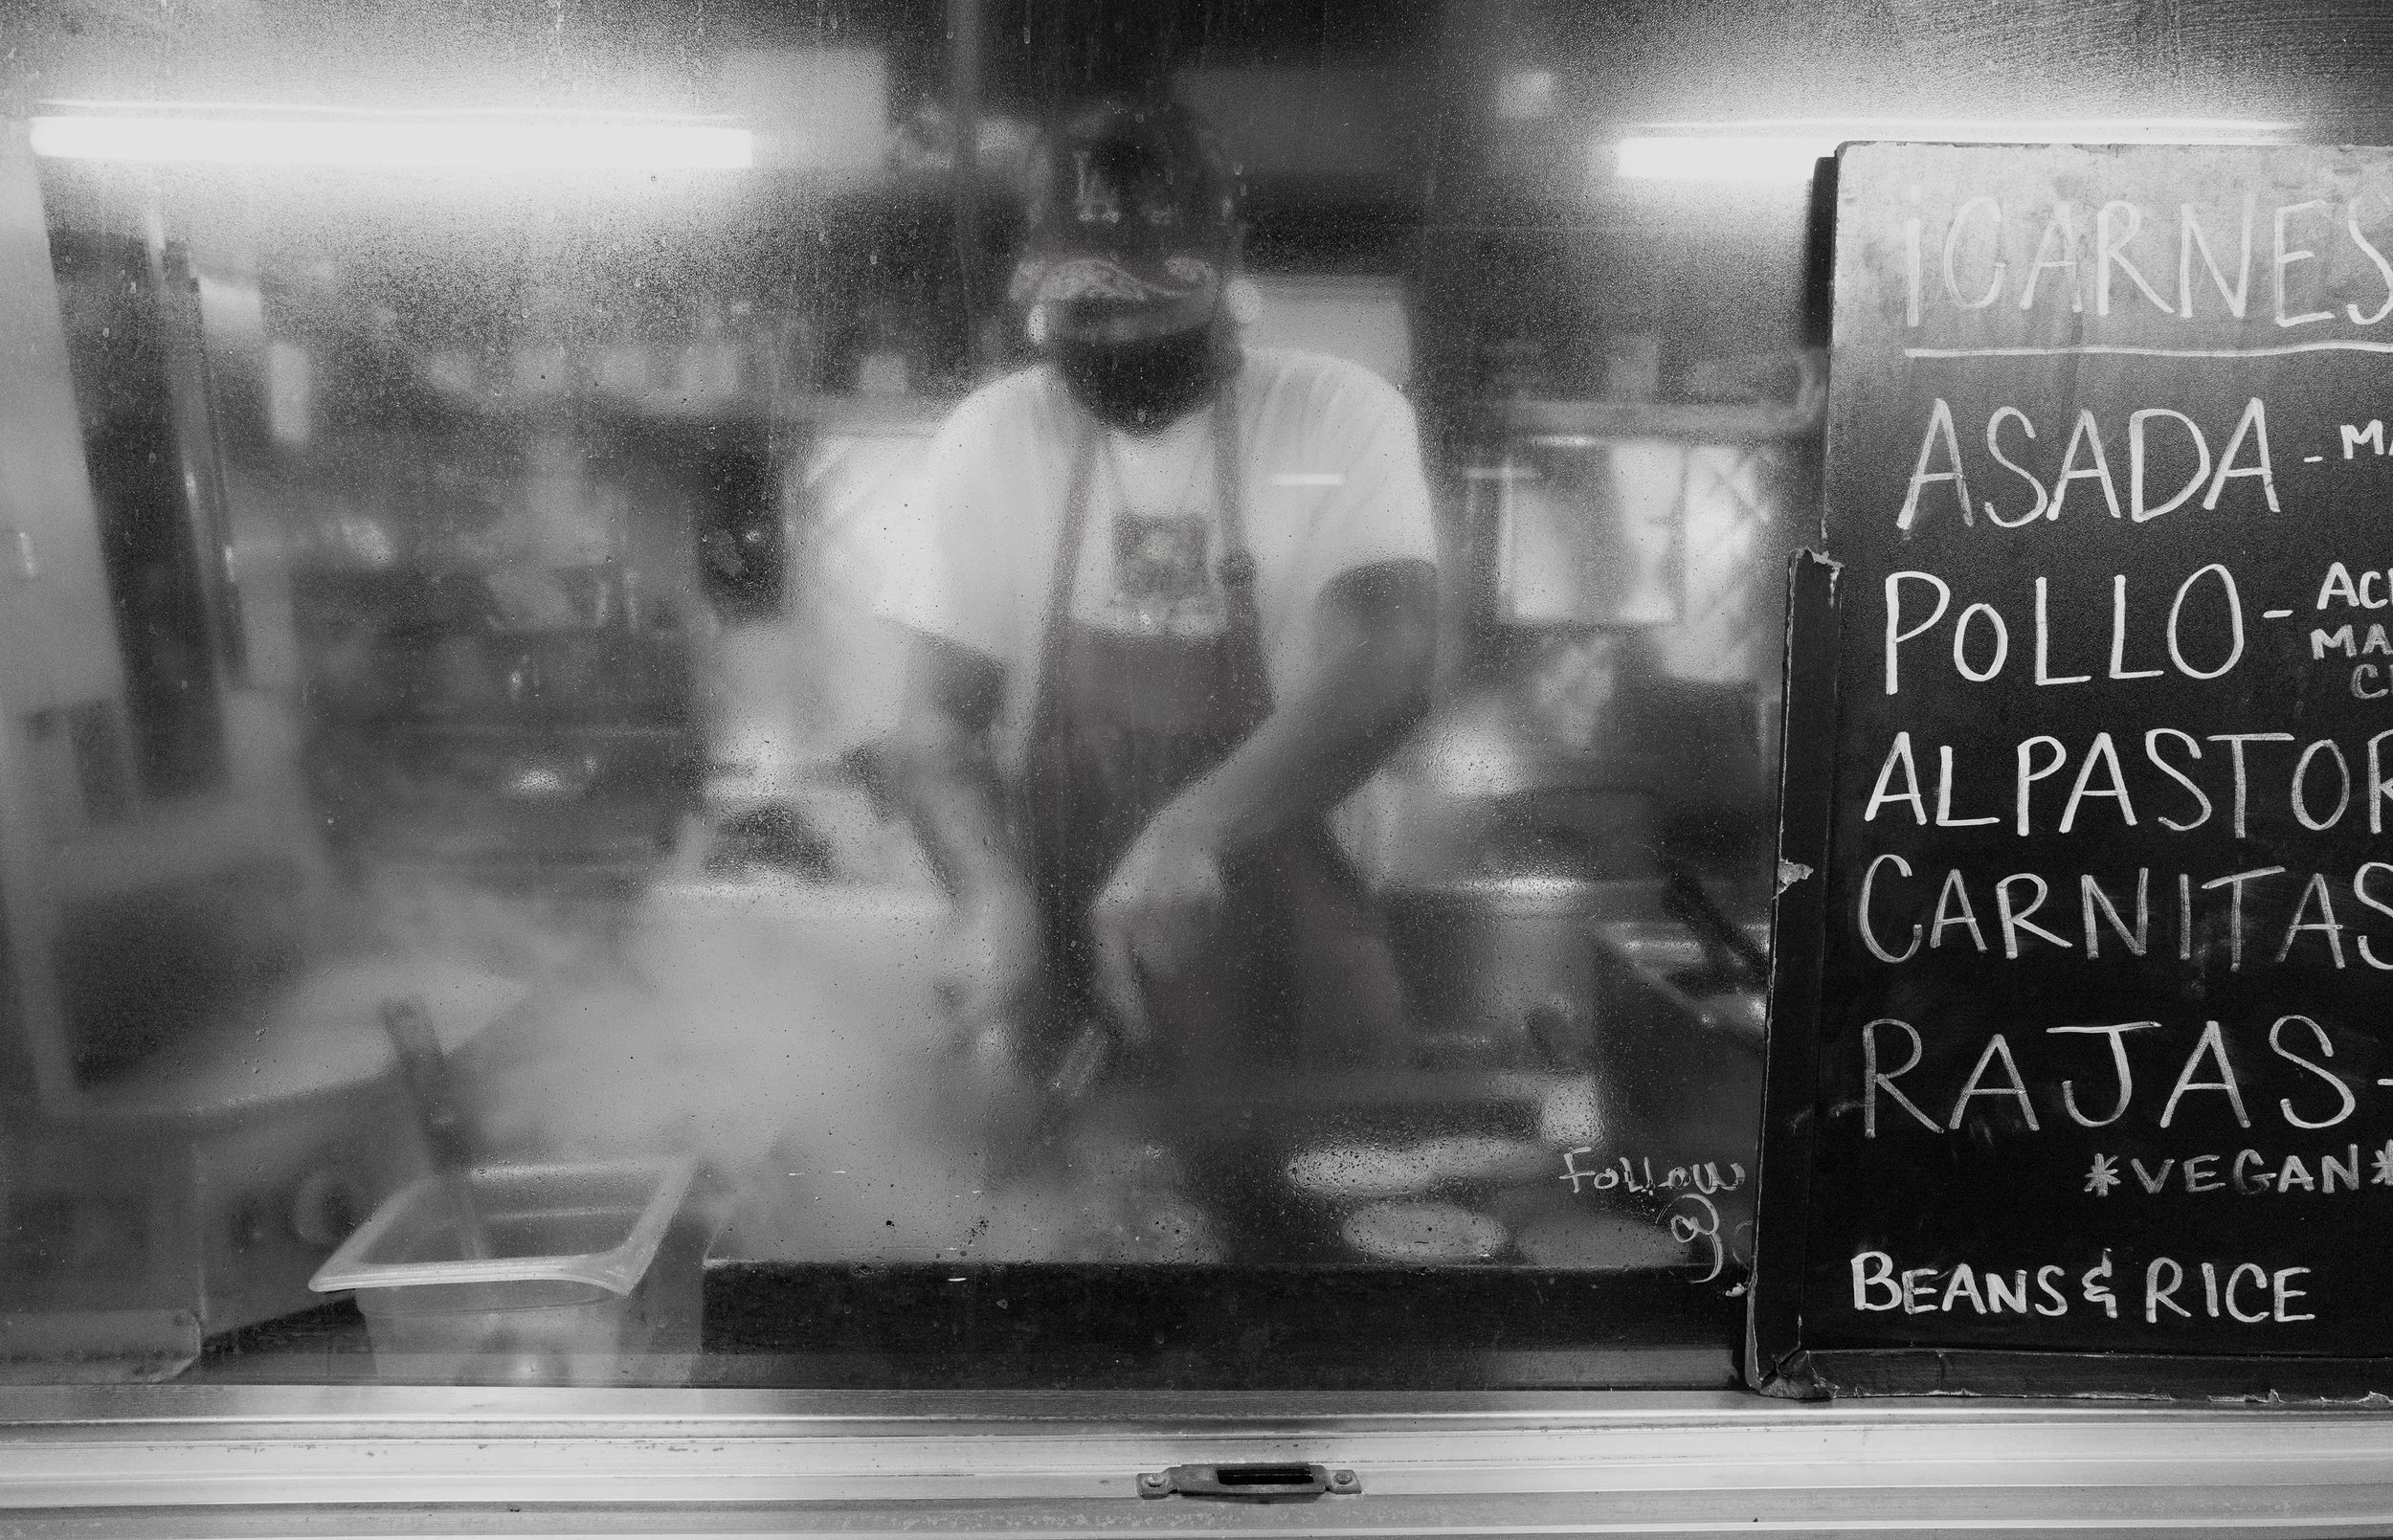 ¡CARNES
ASADA -
POLLO -
AL PASTOR
CARNITAS
RAJAS -
*VEGAN*
BEANS & RICE
Follow
@